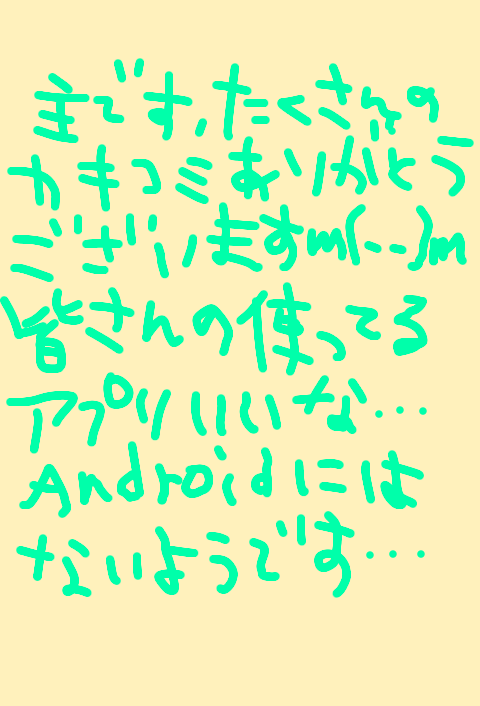 主です、たくさんの
カキコミありがとう
ございますm(--)m
皆さんの使ってる
アプリいいな…
Androidには
ないようです…